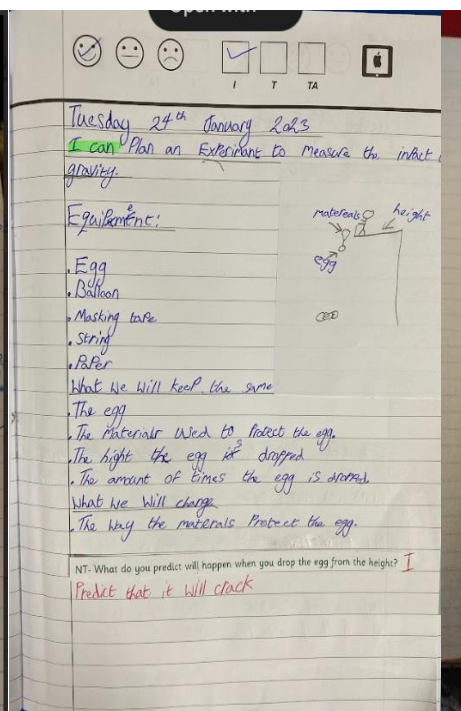 Open with
I T TA
Tuesday 24th January 2023
I can Plan an Experimant to measure the inpact
gravity.
Equipement:
matereals height
egg
. Egg
. Balloon
. Masking tape
. String
. Paper
What we will keep the same
. The egg
. The materials used to Protect the egg.
. The hight the egg is dropped
. The amount of times the egg is dropped.
What we will change
. The way the materals Protect the egg.
NT- What do you predict will happen when you drop the egg from the height? I
Predict that it will crack